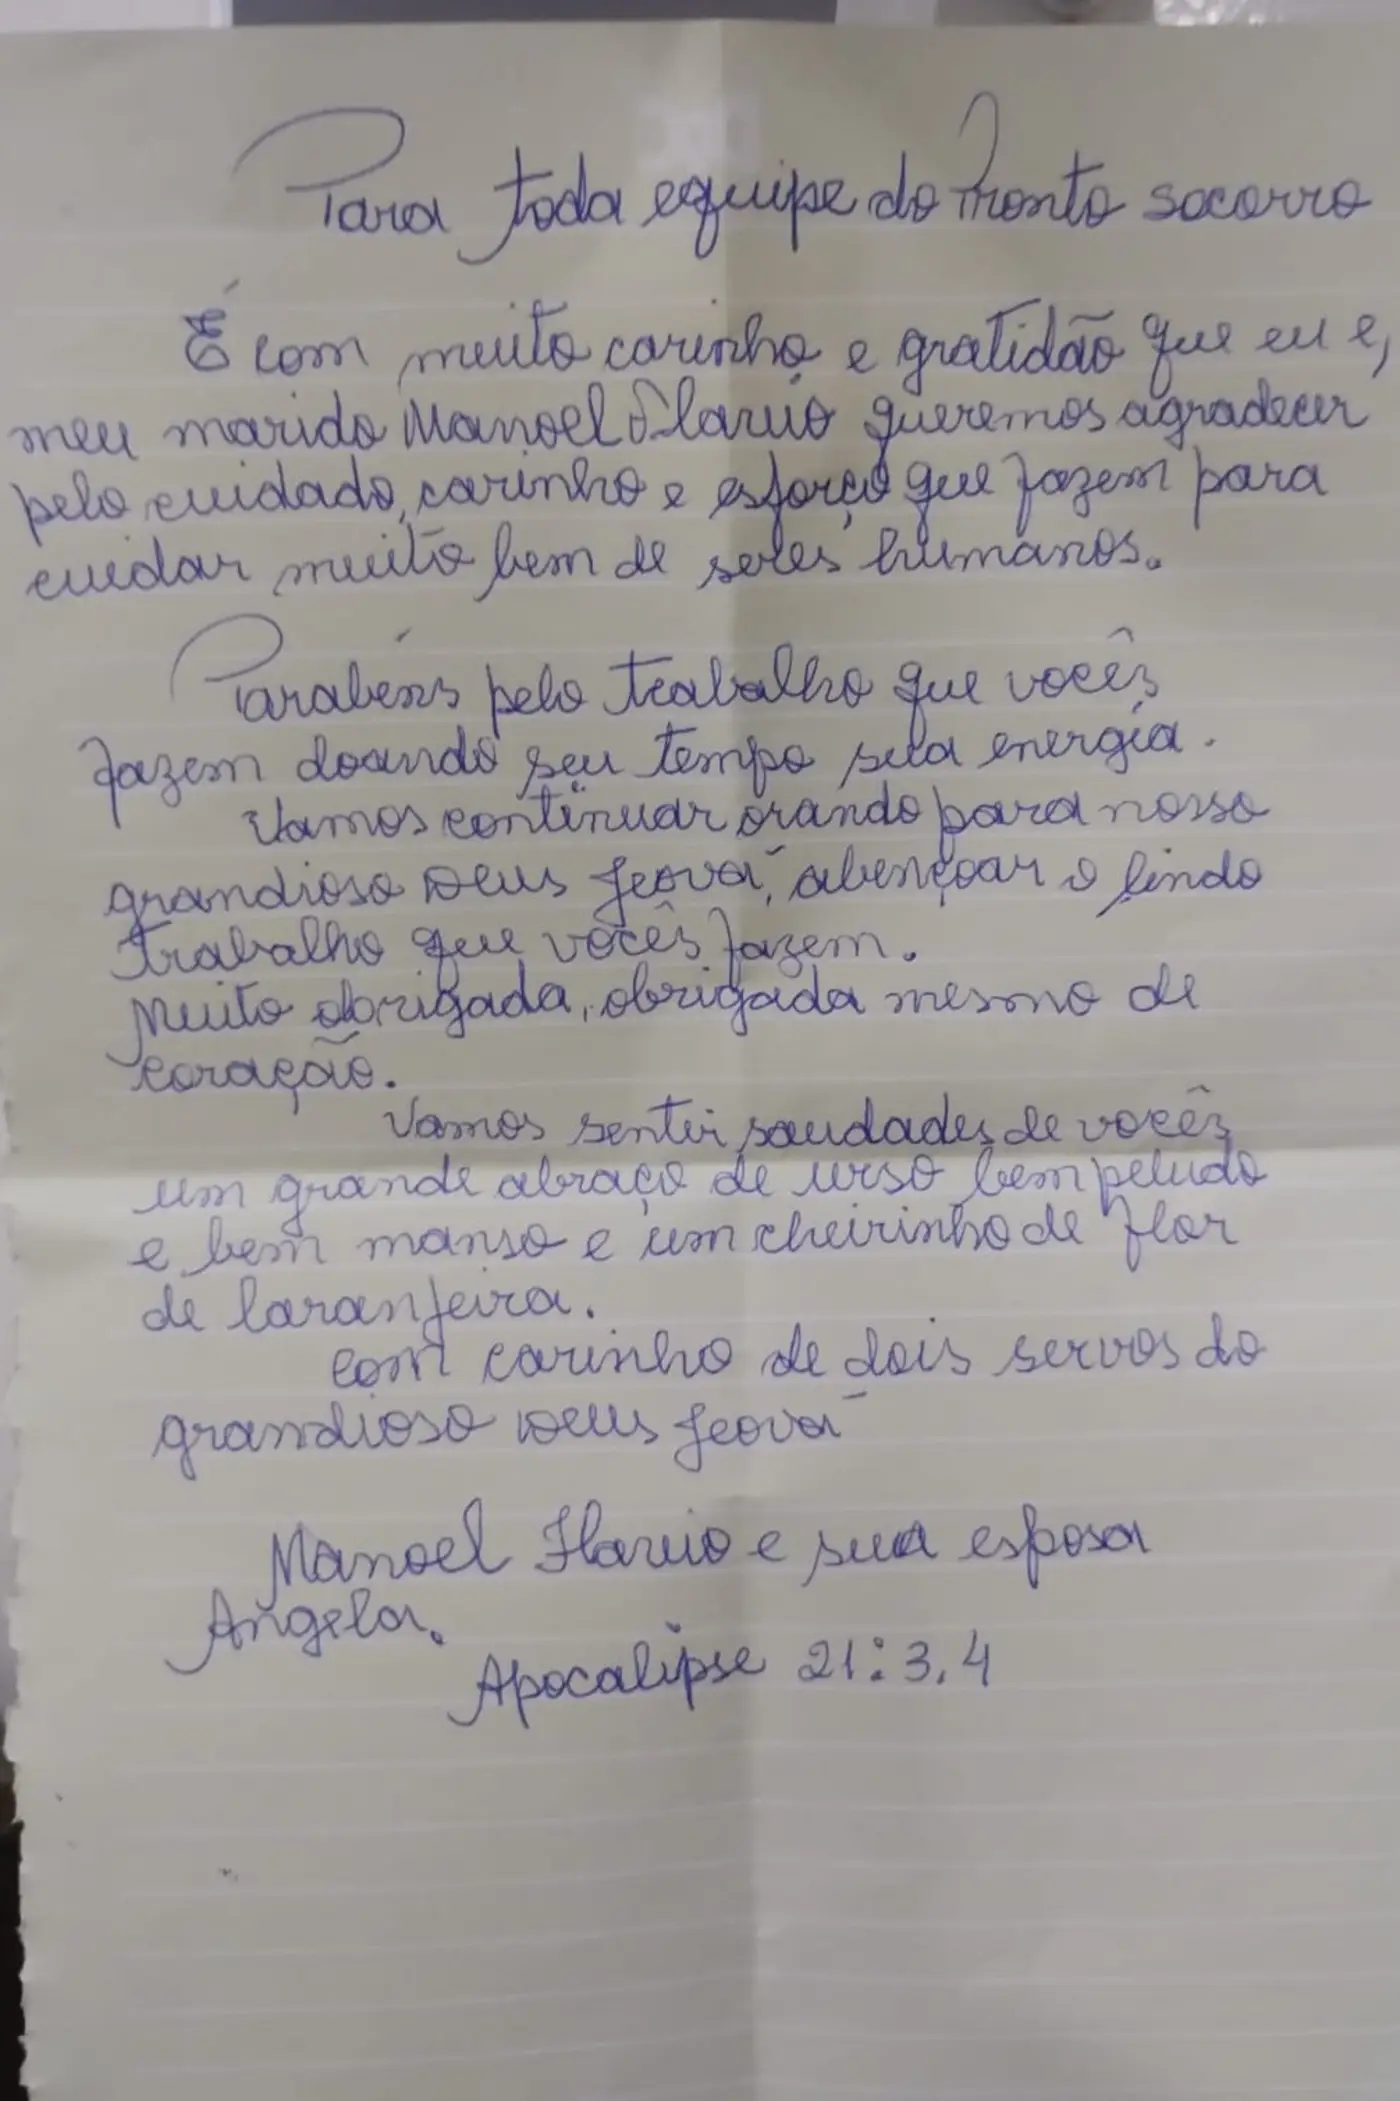 Para toda equipe do Pronto socorro
É com muito carinho e gratidão que eu e,
meu marido Manoel Flavio queremos agradecer
pelo cuidado, carinho e esforço que fazem para
cuidar muito bem de seres humanos.
Parabéns pelo trabalho que vocês
fazem doando seu tempo sua energia.
Vamos continuar orando para nosso
grandioso Deus Jeová, abençoar o lindo
trabalho que vocês fazem.
Muito obrigada, obrigada mesmo de
coração.
Vamos sentir saudades de vocês
um grande abraço de urso bem peludo
e bem manso e um cheirinho de flor
de laranjeira.
Com carinho de dois servos do
grandioso Deus Jeová
Manoel Flavio e sua esposa
Angela.
Apocalipse 21:3,4